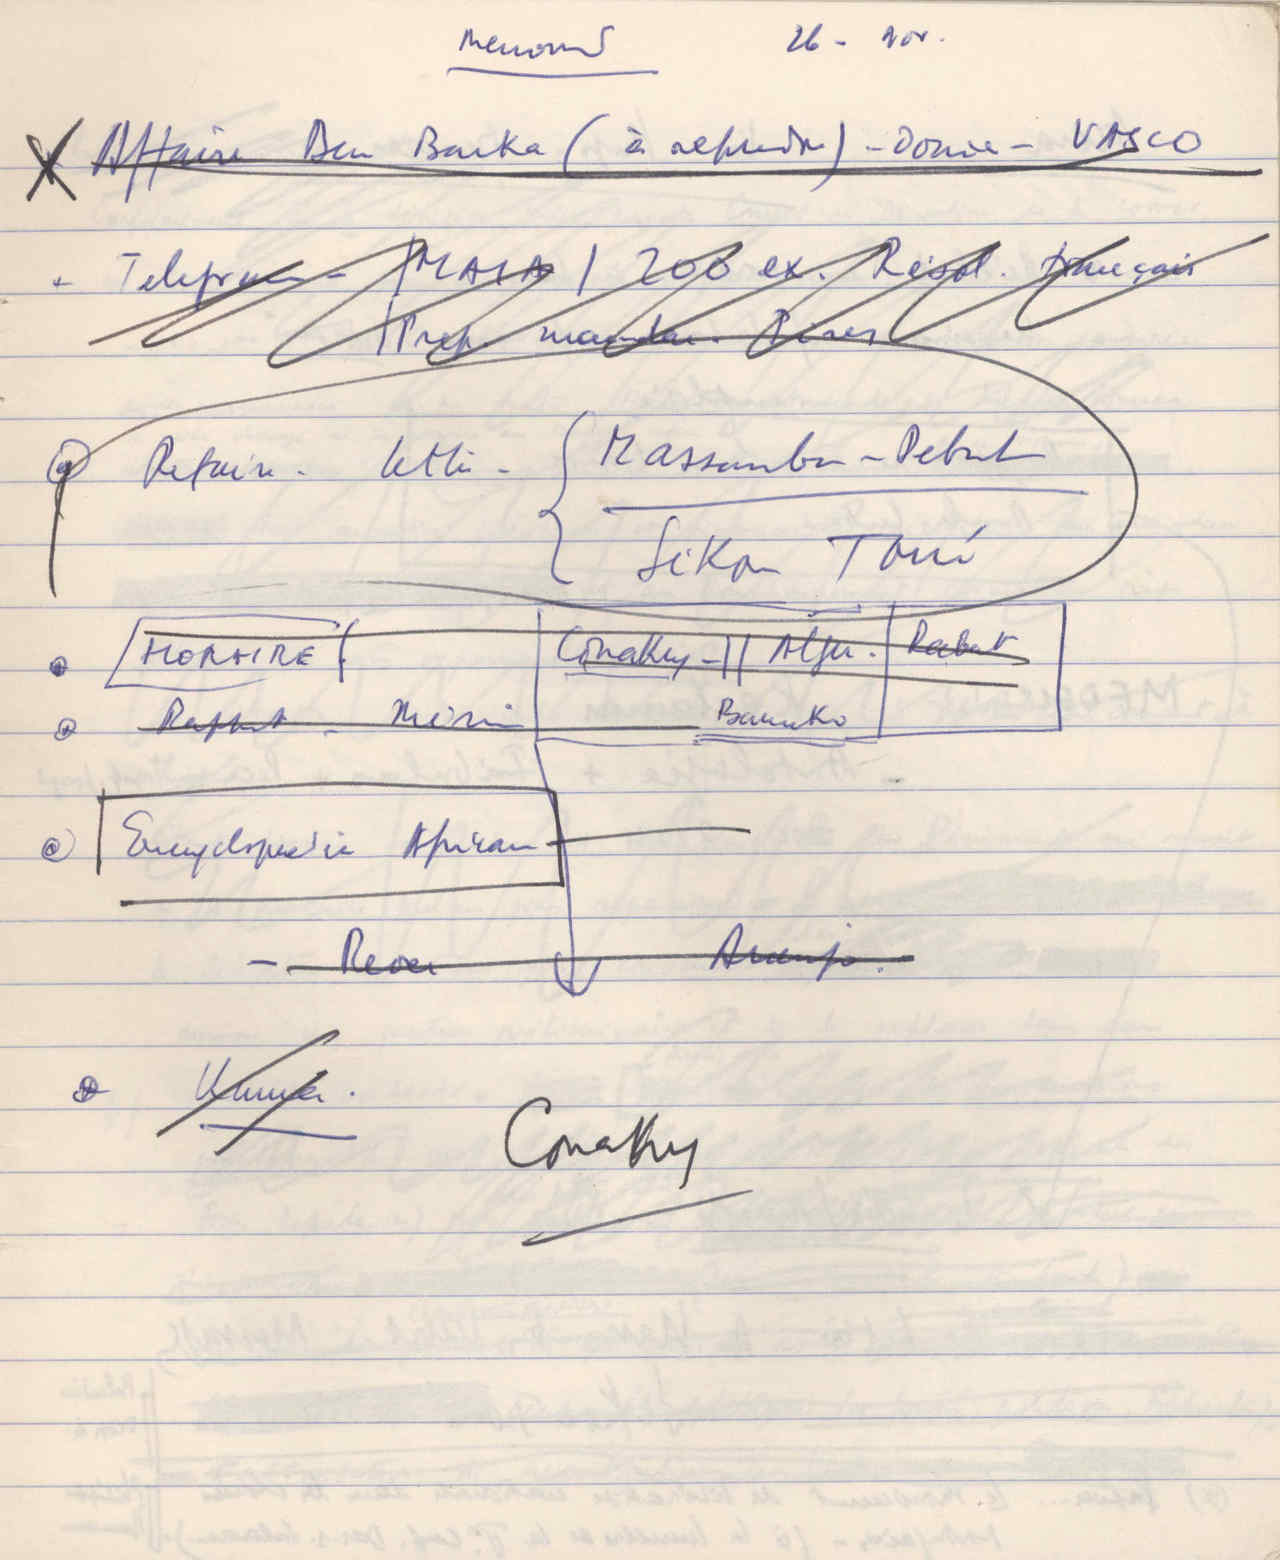 26 - Nov.
Affaire Ben Barka (à reprendre) - Donie - VASCO
Telegram - MASA / 200 ex. Résol. français
Prep. mandar.
Refaire - lettre - Massamba-Debat
Sekou Touré
HORAIRE Conakry - || Alger. Rabat
Rapport - Bamako
Encyclopedie African
- Rever Araujo.
Conakry